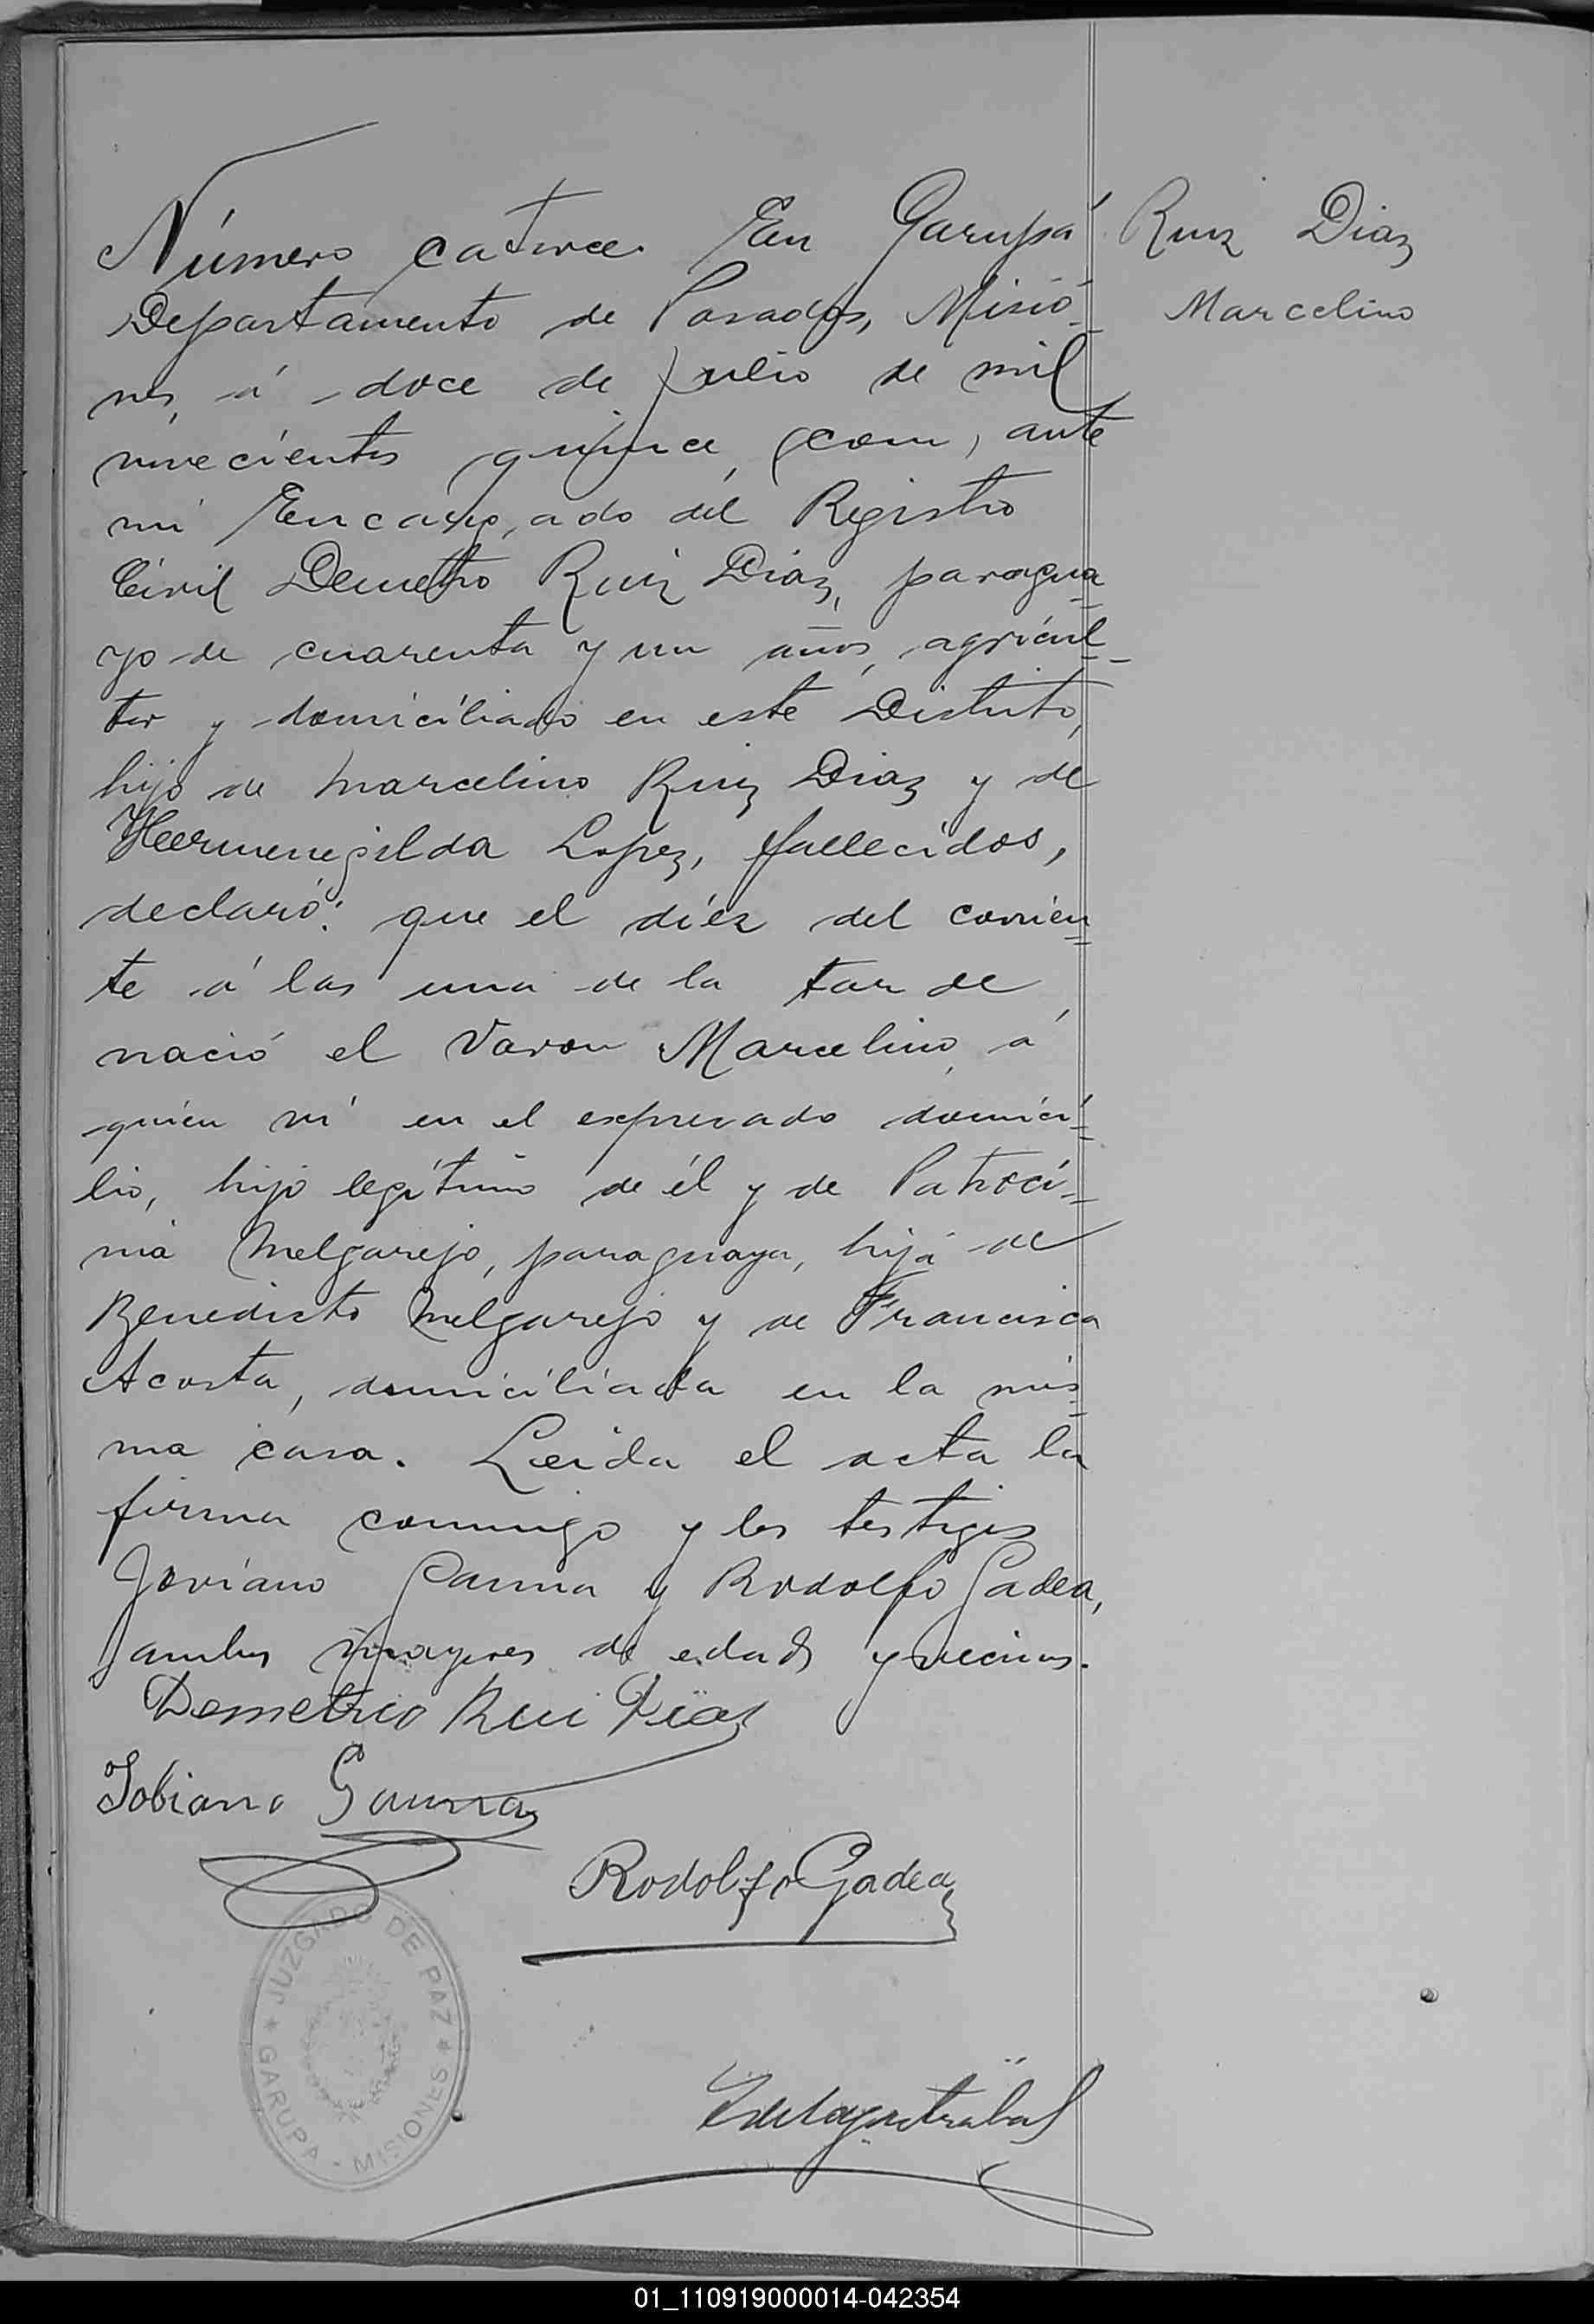 Número catorce. En Garupá
Ruiz Diaz
Departamento de Posadas, Misió-
Marcelino
nes, á doce de Julio de mil
novecientos quince, ante
mi Encargado del Registro
Civil Demetrio Ruiz Diaz, paragua-
yo de cuarenta y un años, agricul-
tor y domiciliado en este Distrito,
hijo de Marcelino Ruiz Diaz y de
Hermenegilda Lopez, fallecidos,
declaró: que el diez del corrien-
te á las una de la tarde
nació el varon Marcelino, á
quien ví en el expresado domici-
lio, hijo legítimo de él y de Patroci-
nia Melgarejo, paraguaya, hija de
Benedicto Melgarejo y de Francisca
Acosta, domiciliada en la mis-
ma casa. Leida el acta la
firma conmigo y los testigos
Joviano Gauna y Rodolfo Gadea,
ambos mayores de edad y vecinos.
Demetrio Rui Diaz
Jobiano Gauna
Rodolfo Gadea
JUZGADO DE PAZ
GARUPA - MISIONES
01_110919000014-042354